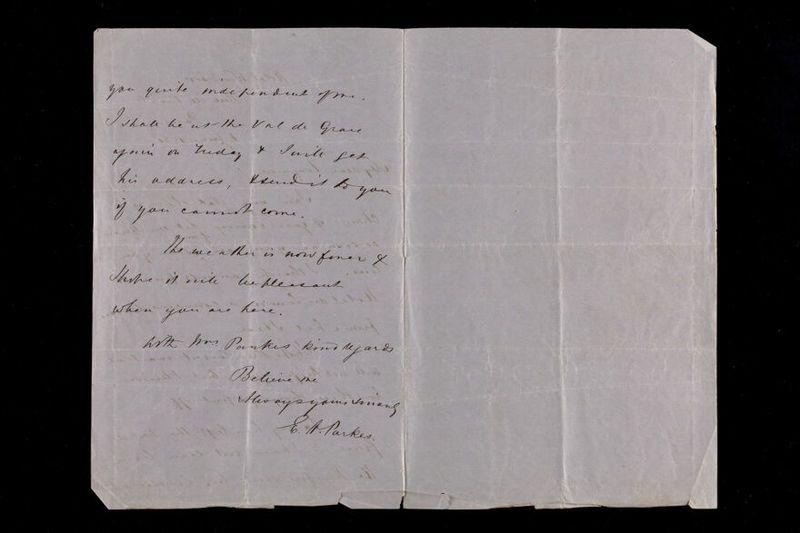 you quite independent of me.
I shall be at the Val de Grace
again on Friday & I will get
his address, & send it to you
if you cannot come.
The weather is now finer &
I hope it will be pleasant
when you are here.
With Mrs Parkes kind regards
Believe me
Always yours sincerely
E. A. Parkes.